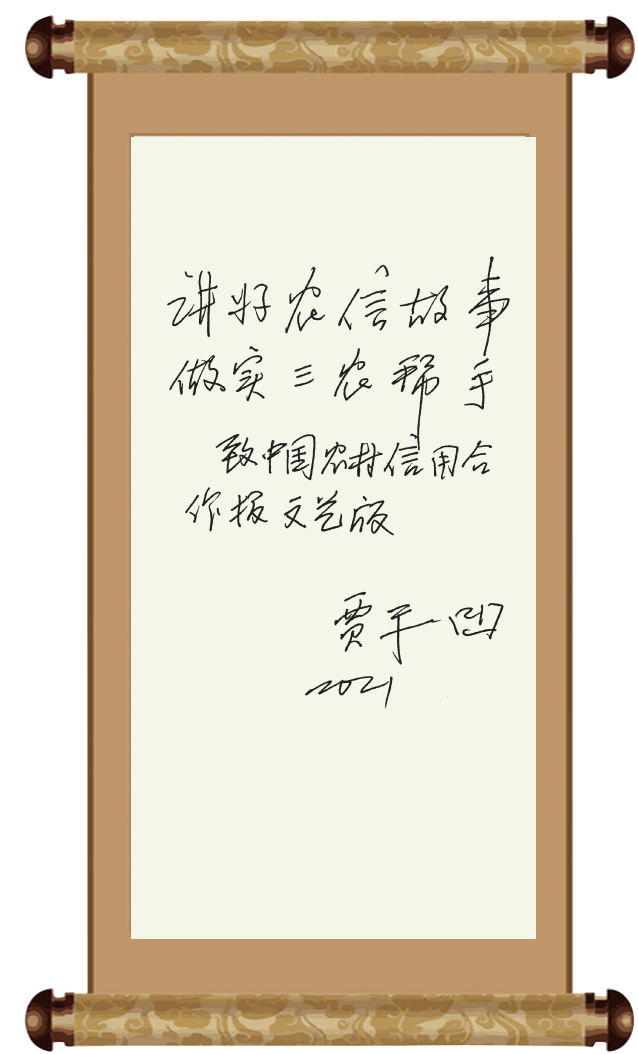 讲好农信故事
做实三农帮手
致中国农村信用合
作报文艺版
贾平凹
2021